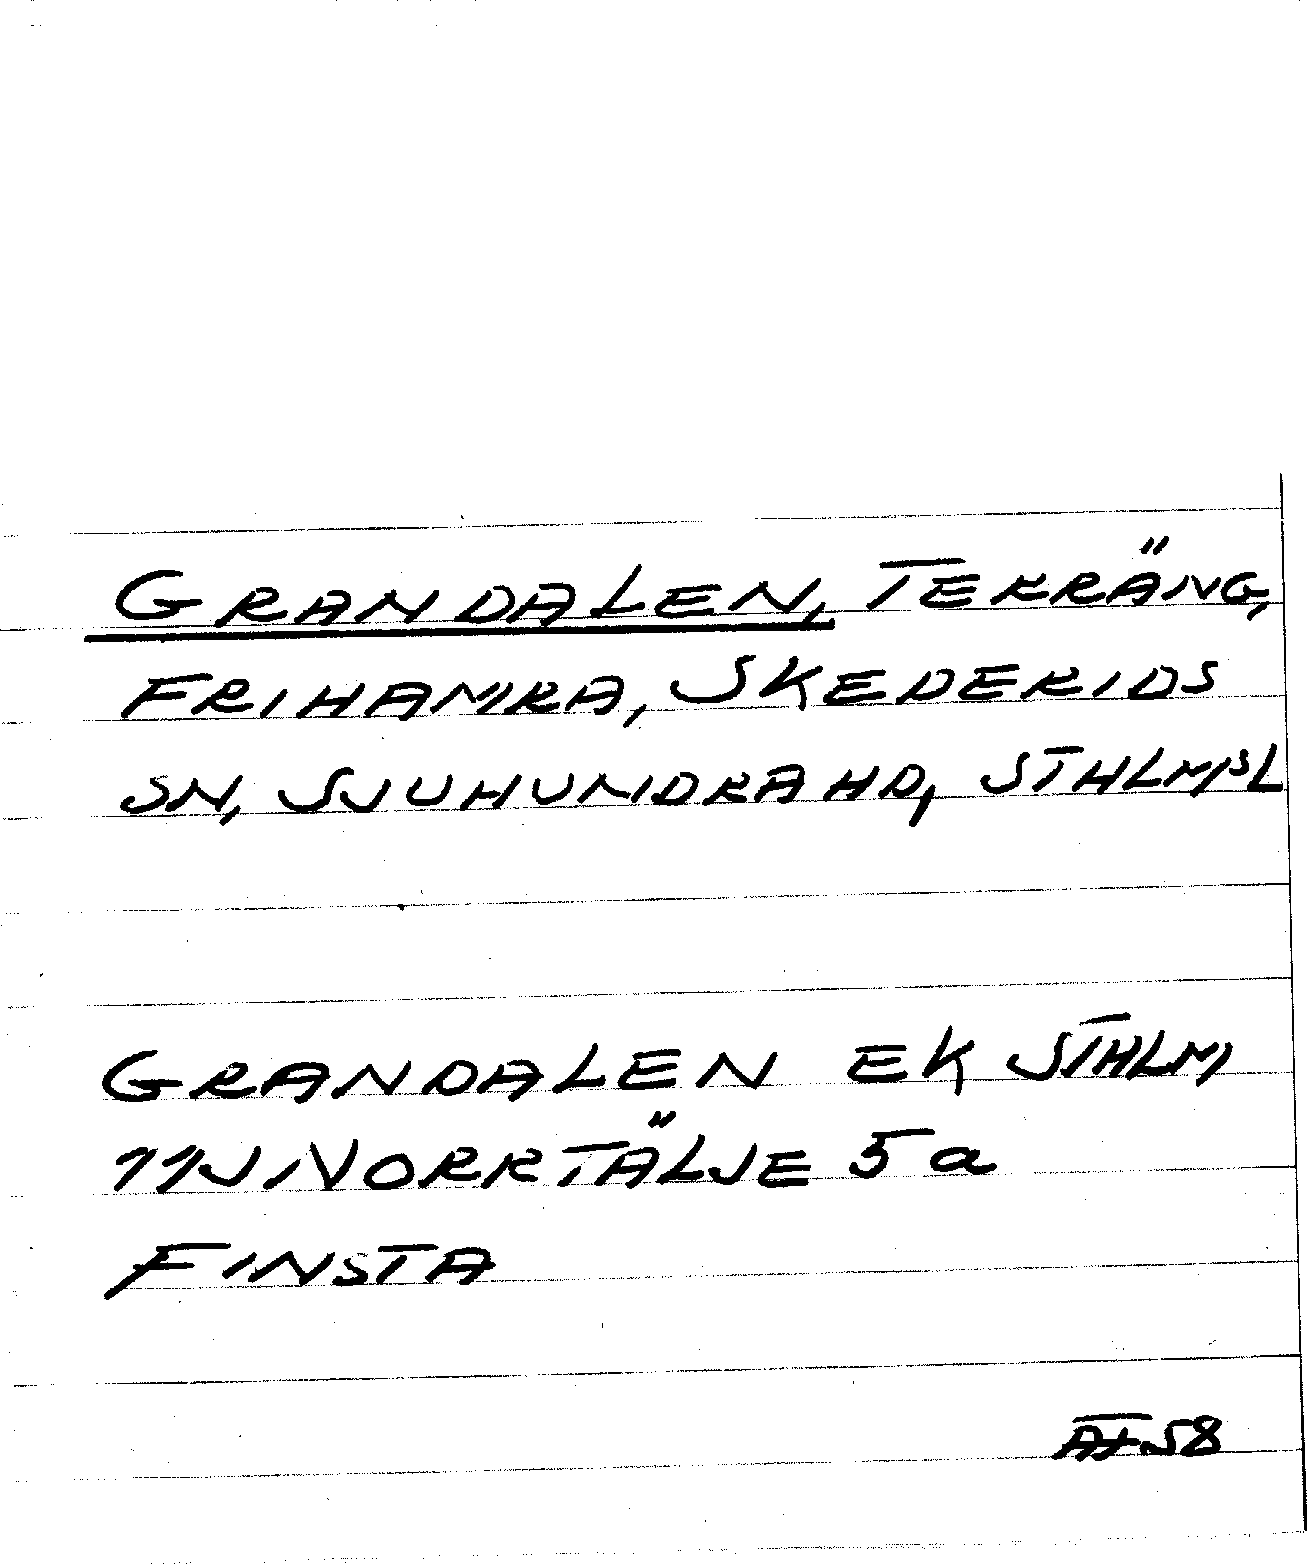 GRANDALEN, TERRÄNG,
FRIHAMRA, SKEDERIDS
SN, SJUHUNDRA HD, STHLMSL
GRANDALEN EK STHLM
11J NORRTÄLJE 5a
FINSTA
58